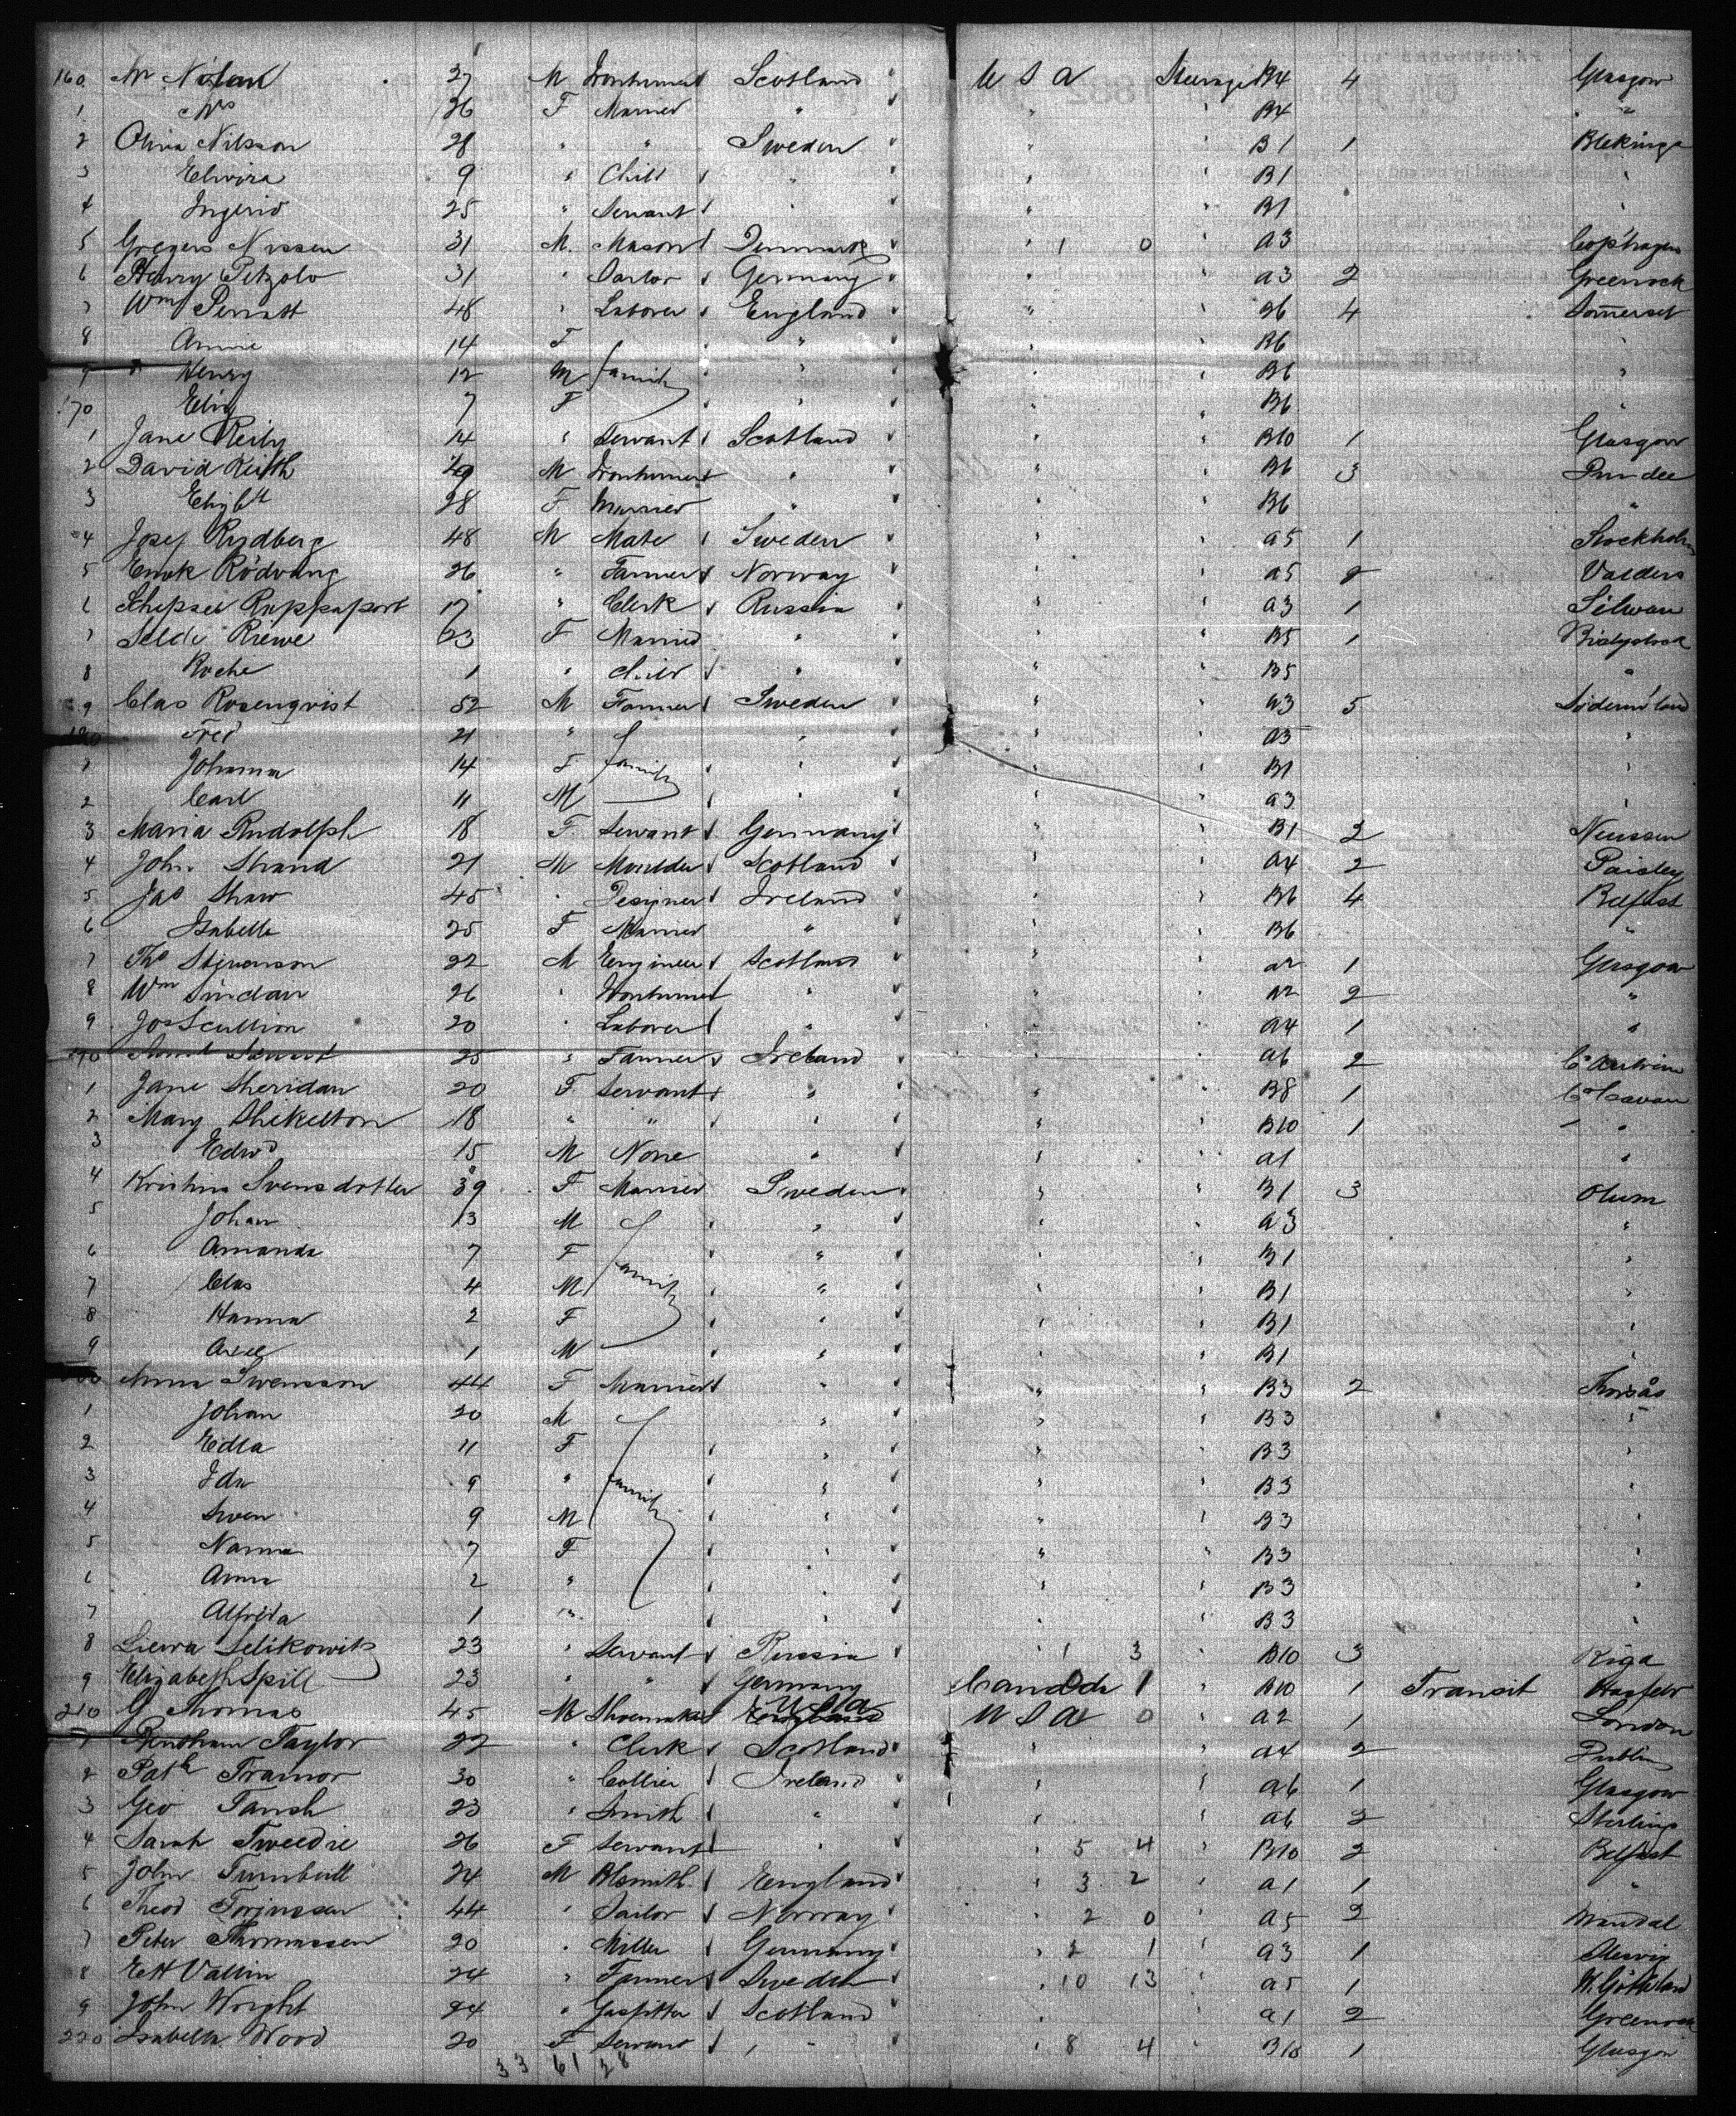 160 Mr Nolan 27 M Scotland U S A Steerage B4 4 Glasgow
1 Mrs 26 F Married " " " B4 "
2 Oliva Nilsson 28 " " Sweden " " B1 1 Blekinge
3 Elwira 9 " Child " " " B1 "
4 Ingrid 25 " Servant " " " B1 "
5 Gregers Nissen 31 M. Mason Denmark " 1 0 A3 Cop'hagen
6 Henry Petzold 31 " Sailor Germany " " A3 2 Greenock
7 Wm Perratt 48 " Laborer England " " B6 4 Somerset
8 Annie 14 F " " " B6 "
9 Henry 12 M family " " " B6 "
170 Eliz 7 F " " " B6 "
1 Jane Reily 14 " Servant Scotland " " B10 1 Glasgow
2 David Keith 29 M " " " B6 3 Dundee
3 Elizbth 28 F Married " " " B6 "
4 Josef Rydberg 48 M Mate Sweden " " A5 1 Stockholm
5 Rödvang 26 " Farmer Norway " " A5 2 Valders
6 Schepsel Rappaport 17 " Clerk Russia " " A3 1 Silwan
7 Selde Riewe 23 F Married " " " B5 1 Bialystock
8 Roche 1 " Child " " " B5 "
9 Clas Rosenqvist 52 M Farmer Sweden " " A3 5 Söderm'land
180 Fred 21 " " " " A3 "
1 Johanna 14 F family " " " B1 "
2 Carl 11 M " " " A3 "
3 Maria Rudolph 18 F Servant Germany " " B1 2
4 John Strand 21 M Moulder Scotland " " A4 2 Paisley
5 Jas Shaw 45 " Designer Ireland " " B6 4 Belfast
6 Isabella 25 F Married " " " B6 "
7 Thos Stevenson 22 M Engineer Scotland " " A2 1 Glasgow
8 Wm 26 " " " " A2 2 "
9 Jos Scullion 20 " Laborer " " " A4 1 "
190 25 " Farmer Ireland " " A6 2 Co Antrim
1 Jane Sheridan 20 F Servant " " " B8 1 Co Cavan
2 Mary Shekelton 18 " " " " " B10 1 "
3 Edwd 15 M None " " " A1 "
4 Kristina Svensdotter 39 F Married Sweden " " B1 3 Olum
5 Johan 13 M " " " A3 "
6 Amanda 7 F " " " B1 "
7 Clas 4 M family " " " B1 "
8 Hanna 2 F " " " B1 "
9 Axel 1 M " " " B1 "
200 Anna Swensson 44 F Married " " " B3 2 Thorsås
1 Johan 20 M " " " B3 "
2 Edla 11 F " " " B3 "
3 Ida 9 " family " " " B3 "
4 Swen 9 M " " " B3 "
5 Nanna 7 F " " " B3 "
6 Anna 2 " " " " B3 "
7 Alfrida 1 " " " " B3 "
8 Liewa Selikowitz 23 " Servant Russia " 1 3 " B10 3 Riga
9 Elizabeth Spill 23 " " Germany Canada 1 B10 1 Transit
210 G Thomas 45 M Shoemaker England U S A U S A 0 A2 1 London
1 Taylor 22 " Clerk Scotland " " A4 2 Dublin
2 Patk Trainor 30 " Collier Ireland " " A6 1 Glasgow
3 Geo Tansh 23 " Smith " " " A6 2 Sterling
4 Sarah Tweedie 26 F Servant " " 5 4 " B10 2 Belfast
5 John Turnbull 24 M Blsmith England " 3 2 " A1 1 "
6 Theod Torjussen 44 " Sailor Norway " 2 0 " A5 2 Mandal
7 Peter Thomassen 20 " Miller Germany " 2 1 " A3 1 Slesvig
8 Vallin 24 " Farmer Sweden " 10 13 " A5 1 W. Göthland
9 John Wright 24 " Gasfitter Scotland " A1 2 Greenock
220 Isabella Wood 20 F Servant " " 8 4 " B10 1 Glasgow
33 61 28